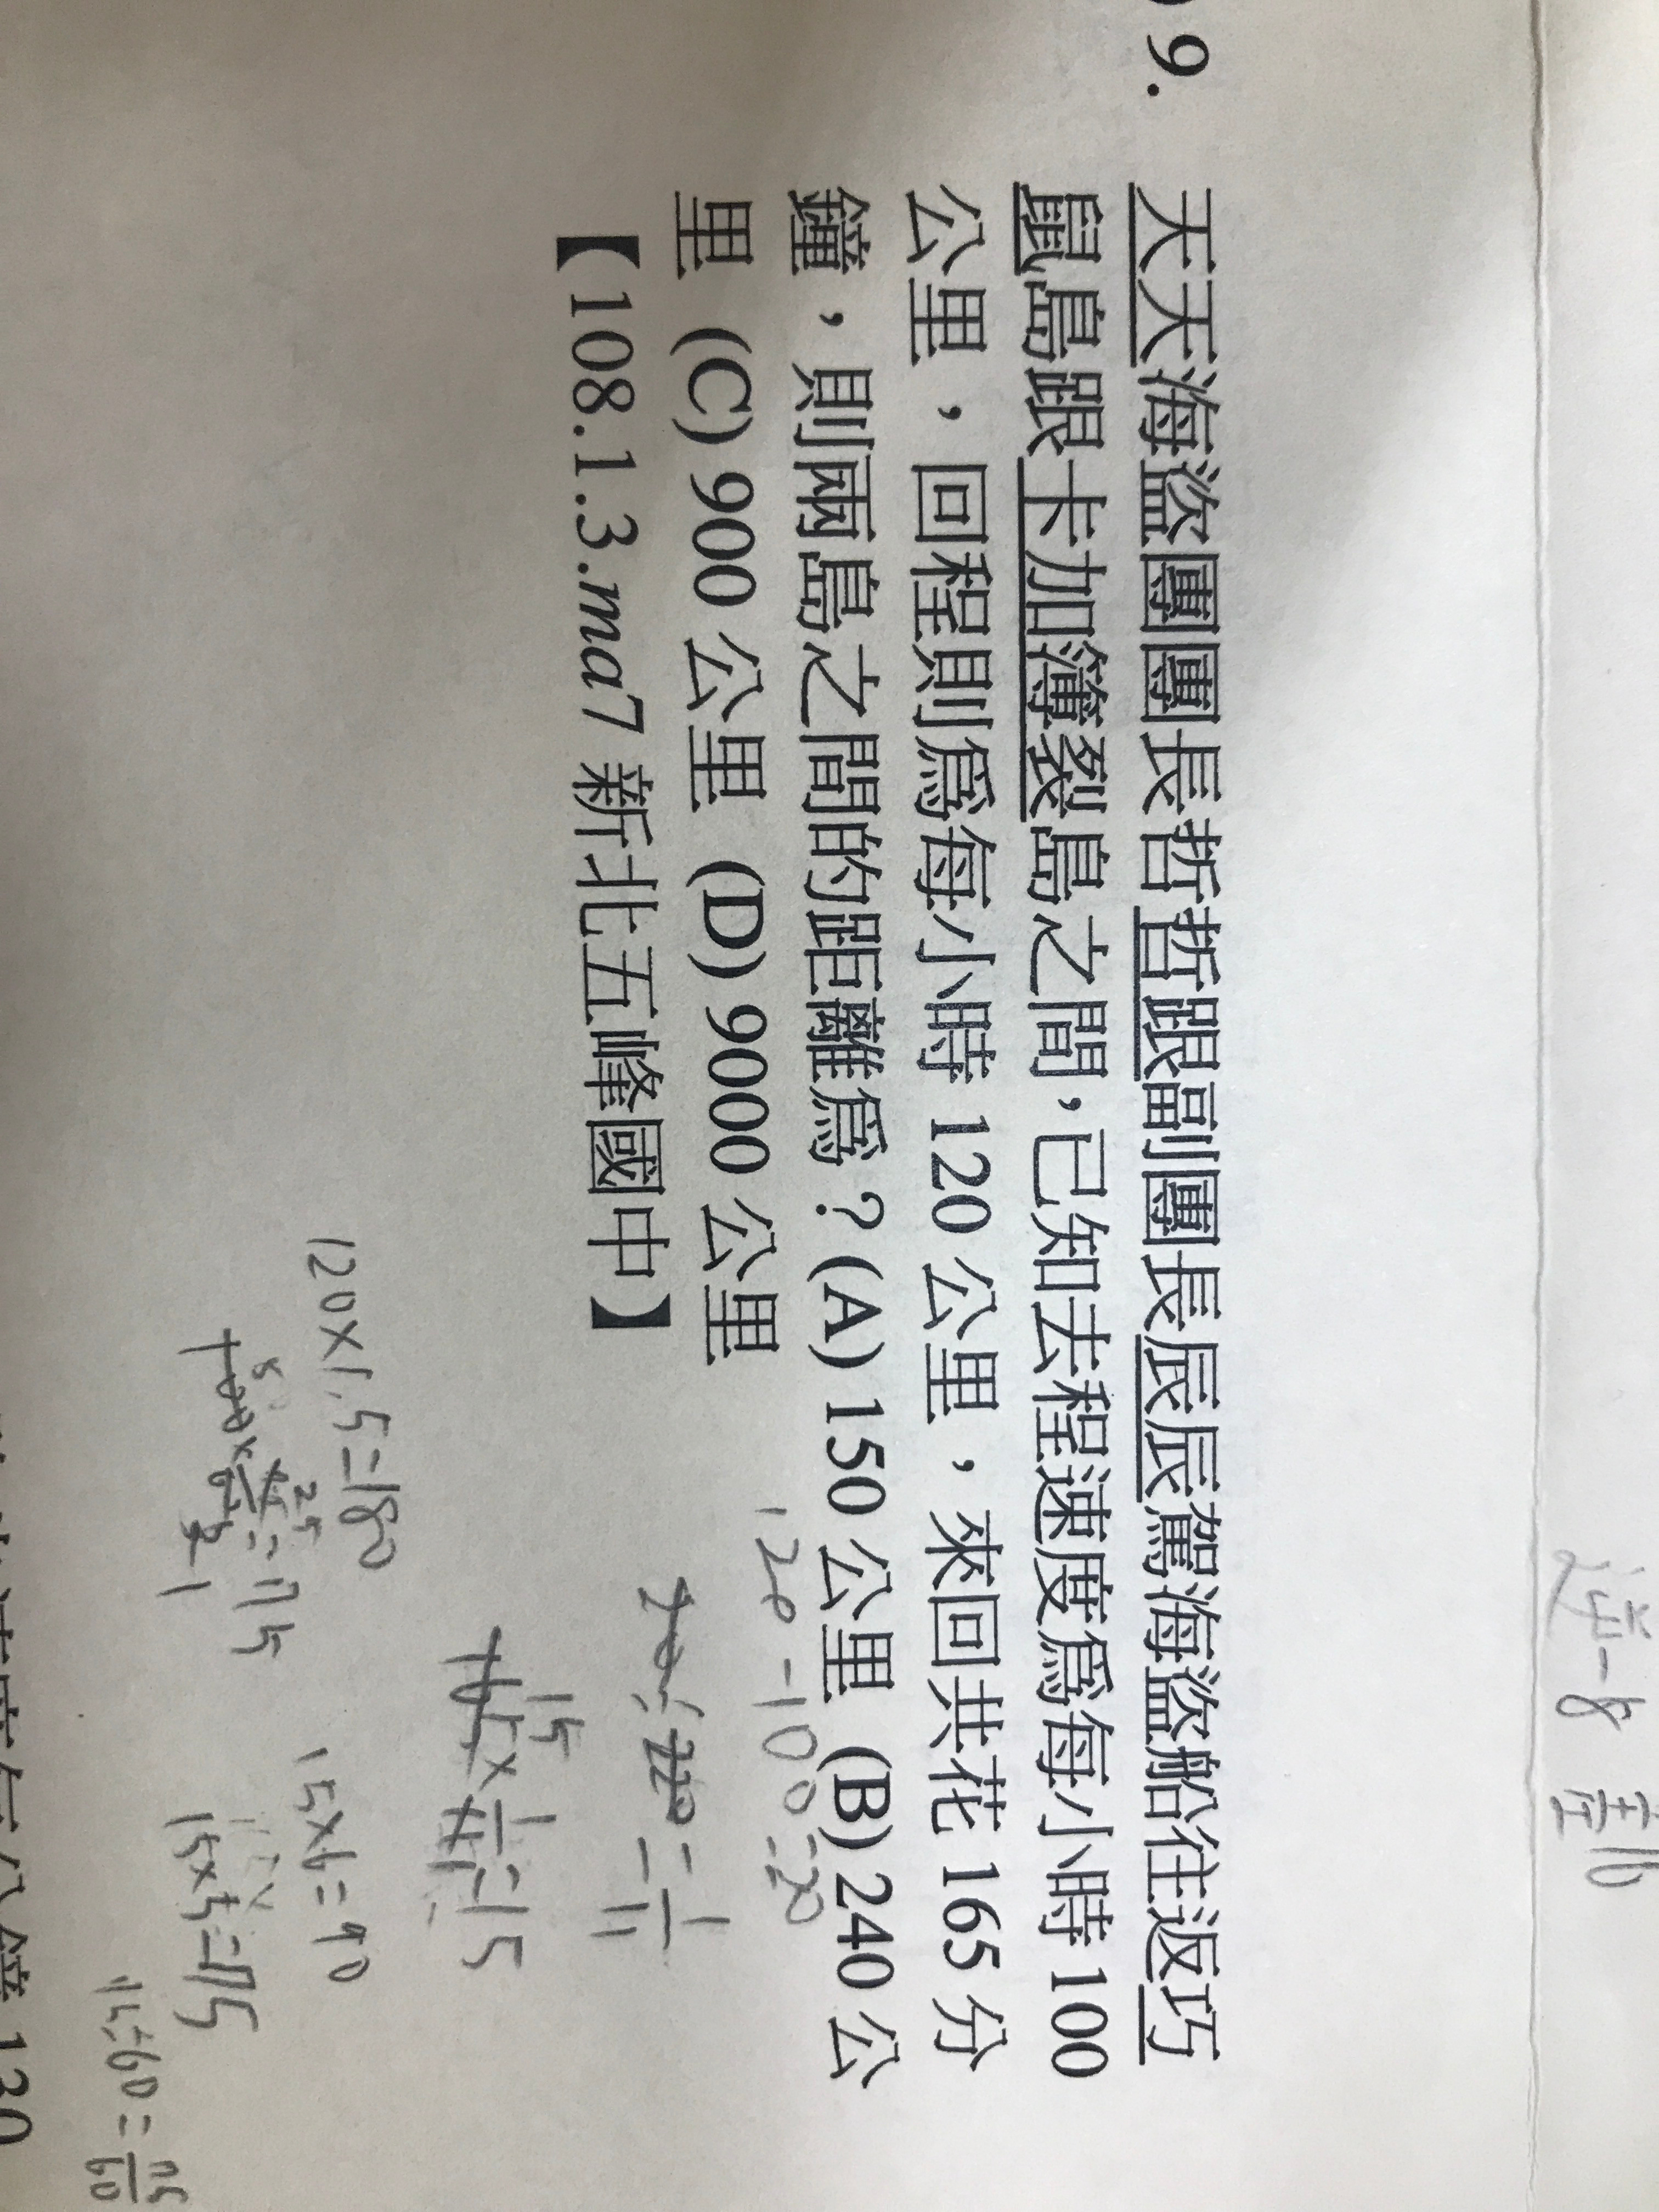 9. 天天海盜團團長哲哲跟副團長辰辰駕海盜船往返巧
鼠島跟卡加簿裂島之間，已知去程速度為每小時 100
公里，回程則為每小時 120 公里，來回共花 165 分
鐘，則兩島之間的距離為？(A) 150 公里 (B) 240 公
里 (C) 900 公里 (D) 9000 公里
【108.1.3.ma7 新北五峰國中】
120-100=20
20:220=1/11
165×1/11=15
120×1.5=180
15×6=90
15×5=75